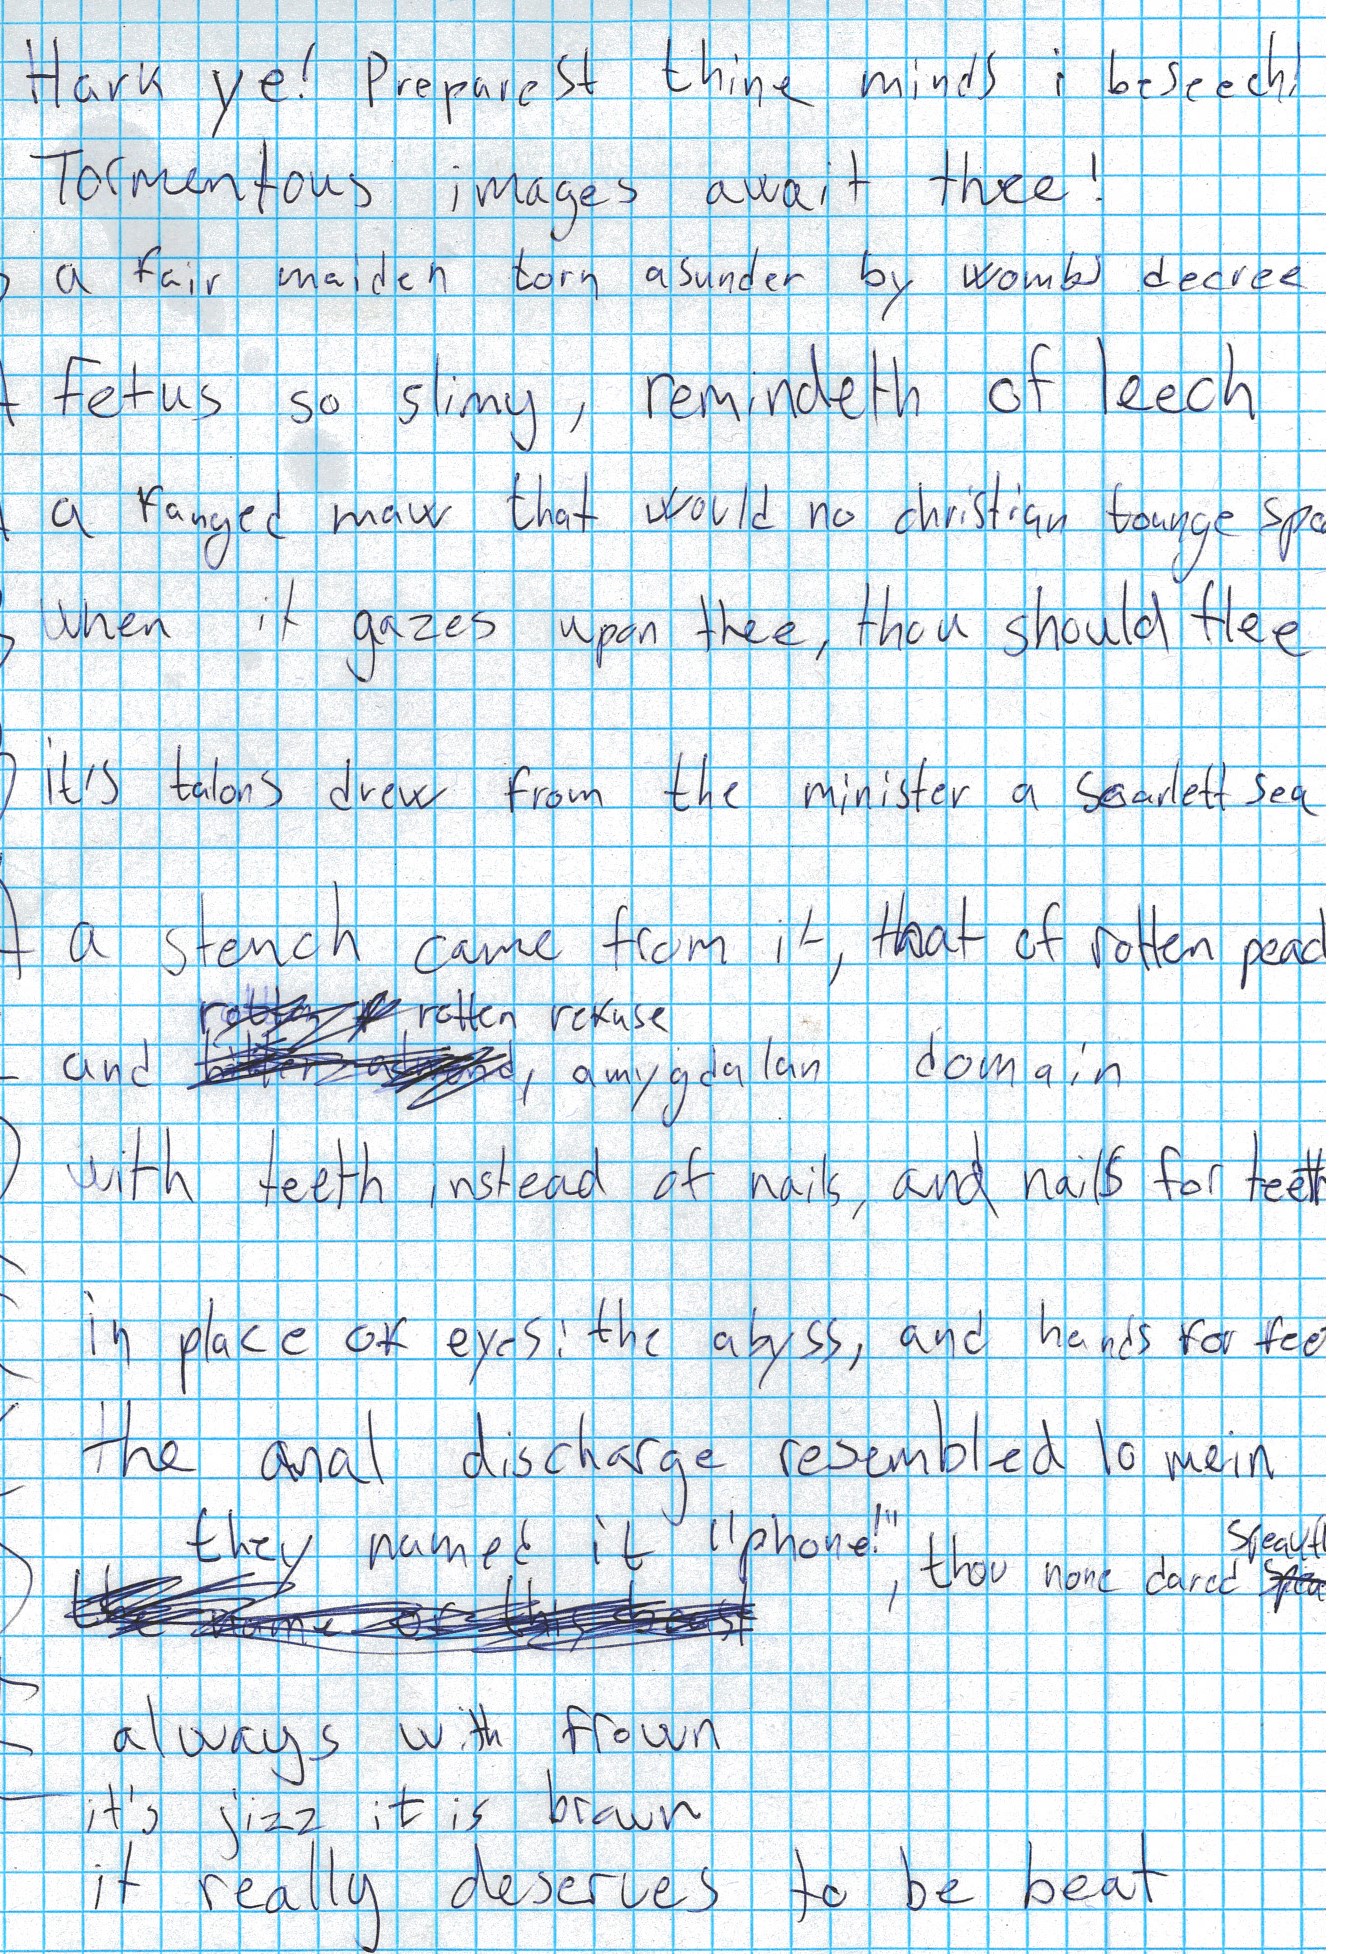 Hark ye! Preparest thine minds i beseech!
Tormentous images await thee!
a fair maiden torn asunder by wombs decree
fetus so slimy, remindeth of leech
a fanged maw that would no christian tounge spea
when it gazes upon thee, thou should flee
it's talons drew from the minister a scarlett sea
a stench came from it, that of rotten peac
rotten refuse
and , amygdalan domain
with teeth instead of nails, and nails for teeth
in place of eyes: the abyss, and hands for fee
the anal discharge resembled lo mein
they named it "phone!", thou none dared
always with frown
it's jizz it is brown
it really deserves to be beat